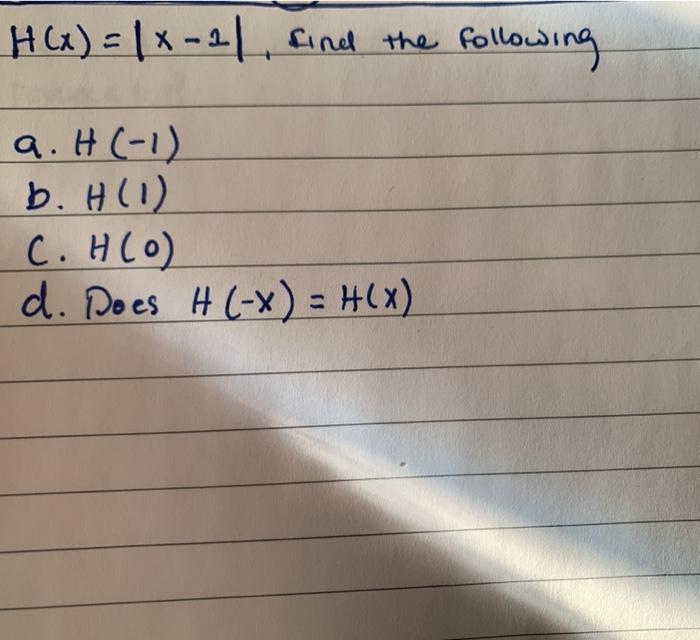 H(x) = |x - 1|, find the following
a. H(-1)
b. H(1)
C. H(0)
d. Does H(-x) = H(x)